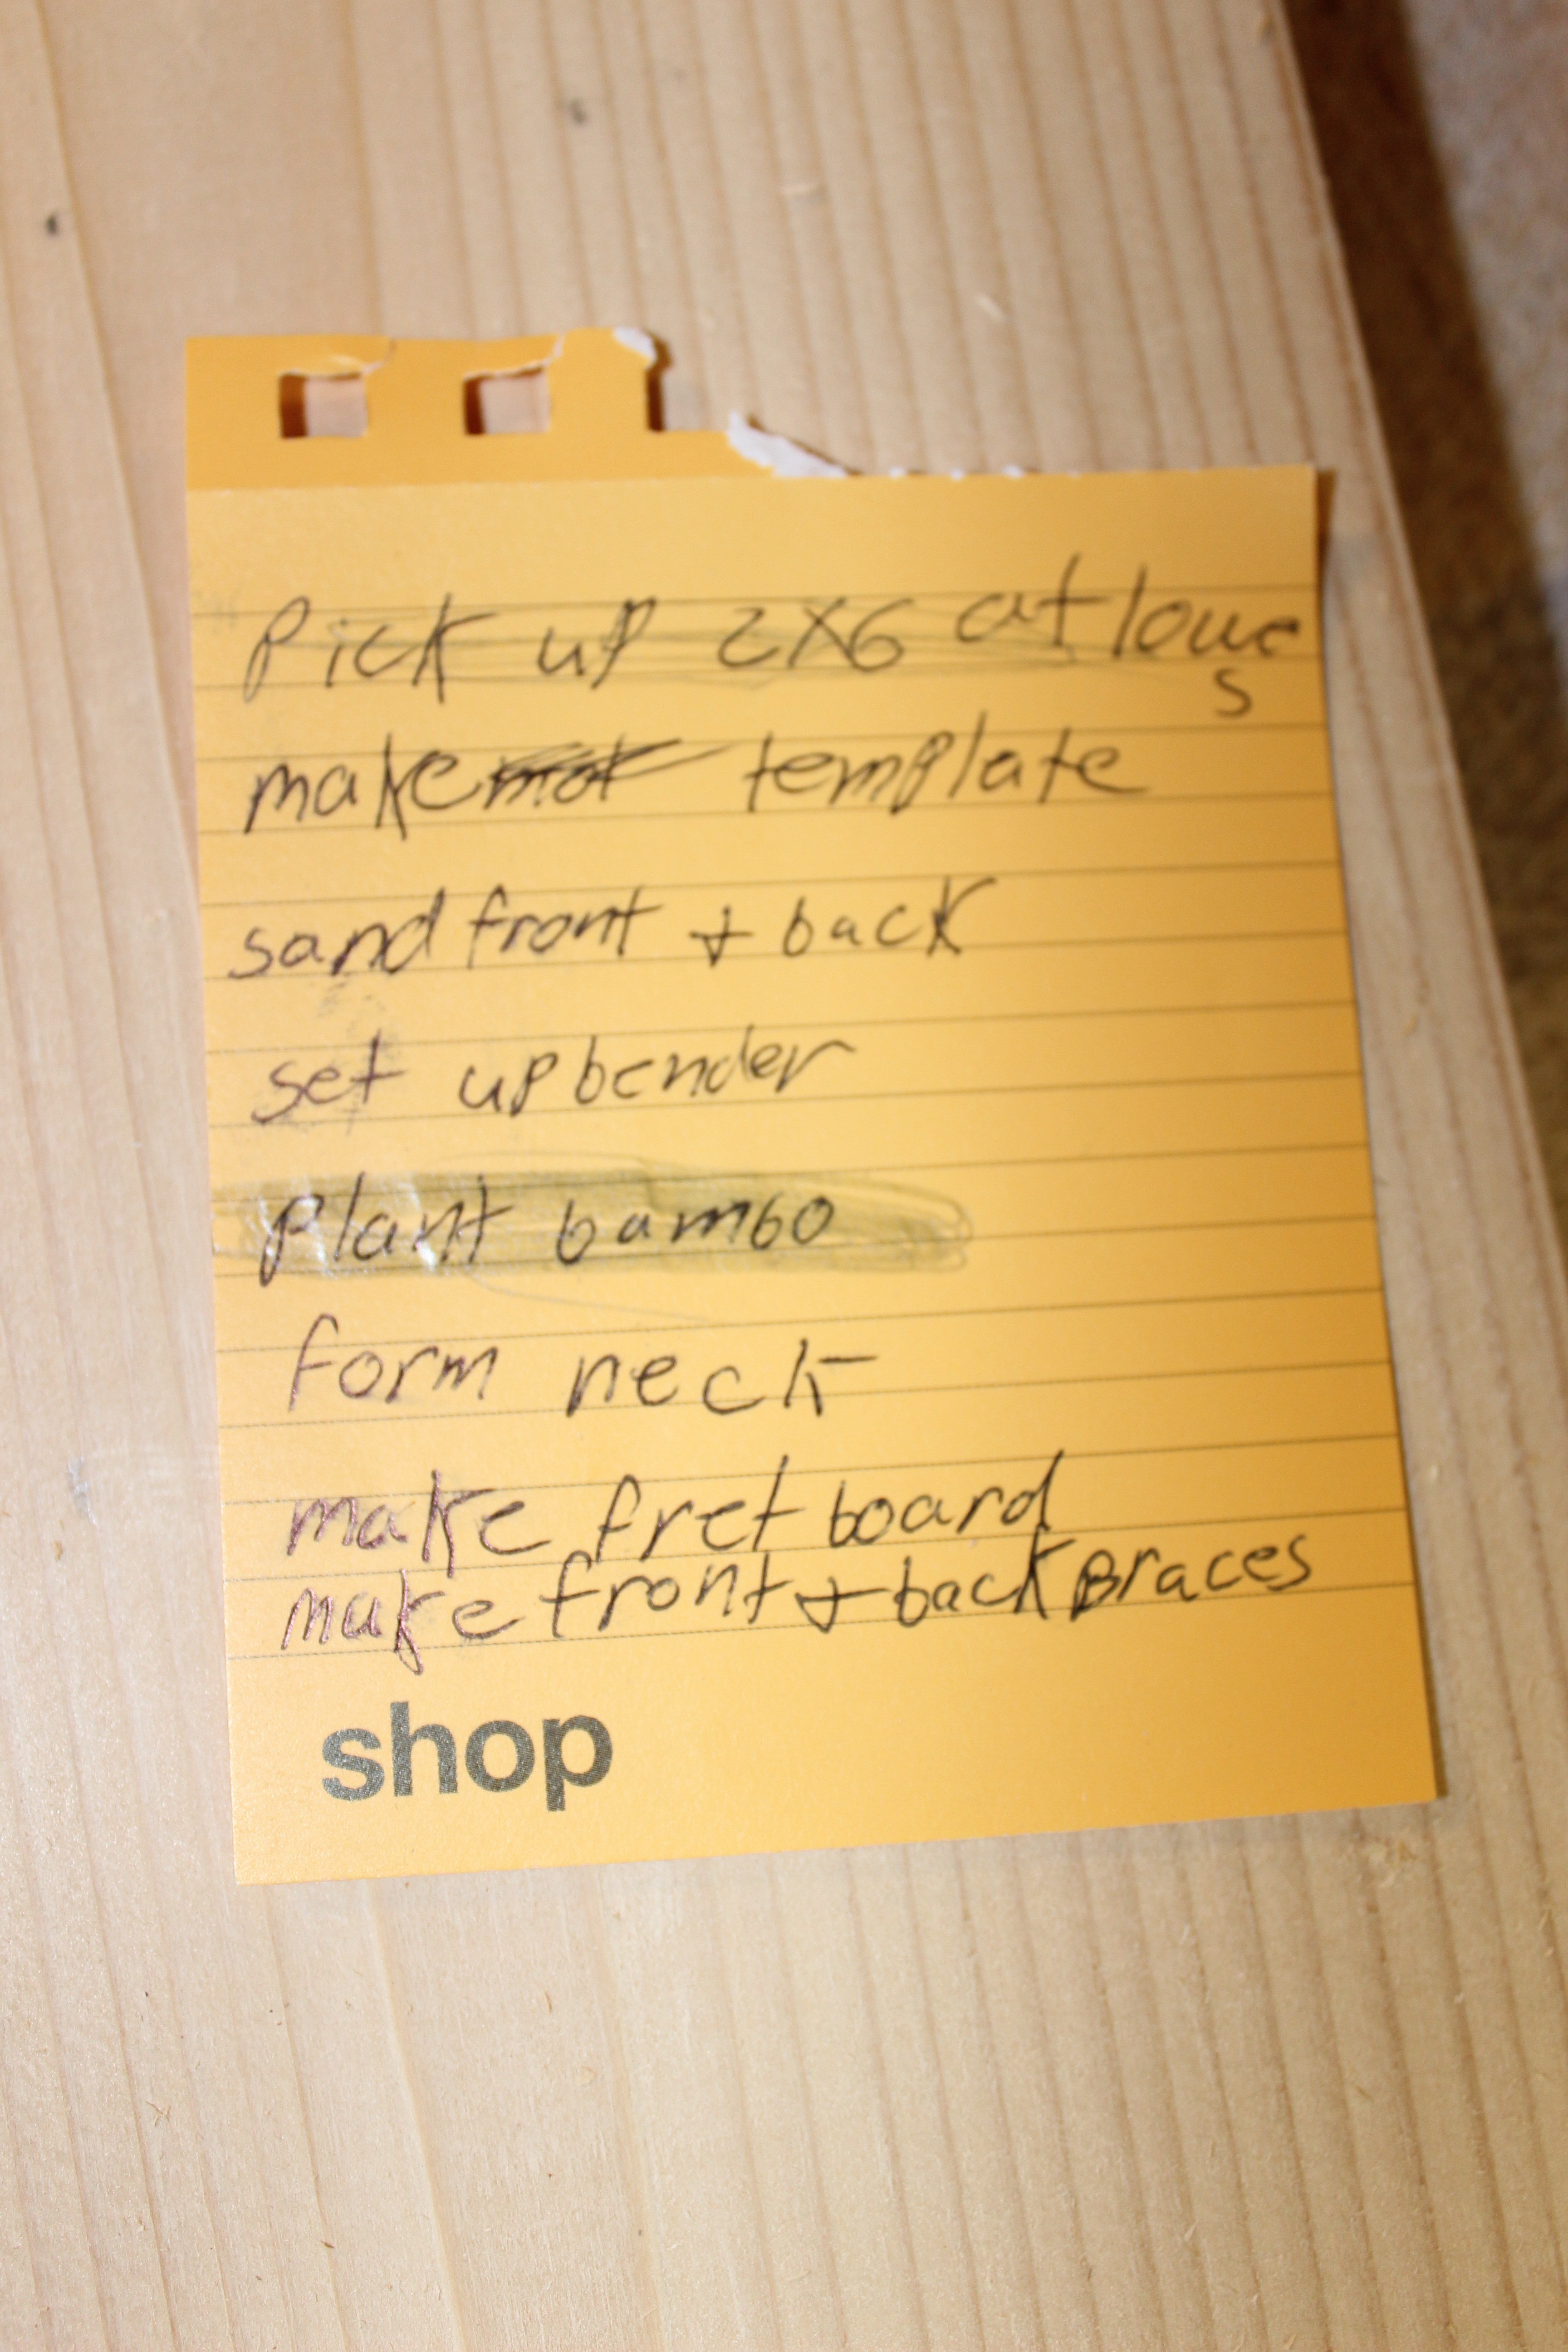 Pick up 2x6 at lowe
s
make template
sand front + back
set up bender
plant bambo
form neck
make fret board
make front + back Braces
shop